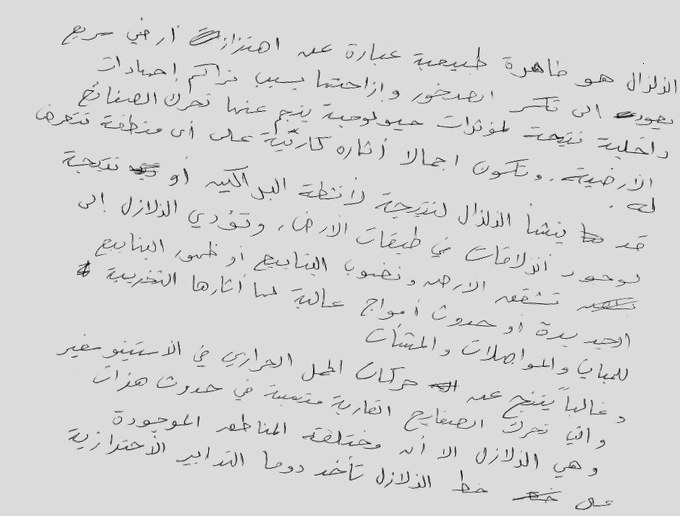 الزلزال هو ظاهرة طبيعية عبارة عن اهتزازات أرضي سريع
يعود الى تكسر الصخور وإزاحتها بسبب تراكم إجهادات
داخلية نتيجة لمؤثرات جيولوجية ينجم عنها تحرك الصفائح
الأرضية. وتكون اجمالا أثاره كارثية على أى منطقة تتعرض
له.
قد ينشأ الزلزال لنتيجة لأنشطة البراكين أو نتيجة
لوجود انزلاقات في طبقات الارض، وتؤدي الزلازل الى
تشقق الارض ونضوب الينابيع أو ظهور الينابيع
الجديدة أو حدوث أمواج عالية لما أثارها التخريبية
للمباني والمواصلات والمنشأت
وغالباً ينتج عن حركات الحمل الحراري في الأستينوسفير
والتي تحرك الصفايح القارية متسببة في حدوث هذات
وهي الزلازل الا أن مختلفة المناطق الموجودة
على خط الزلازل تأخد دوما التدابير الأحترازية